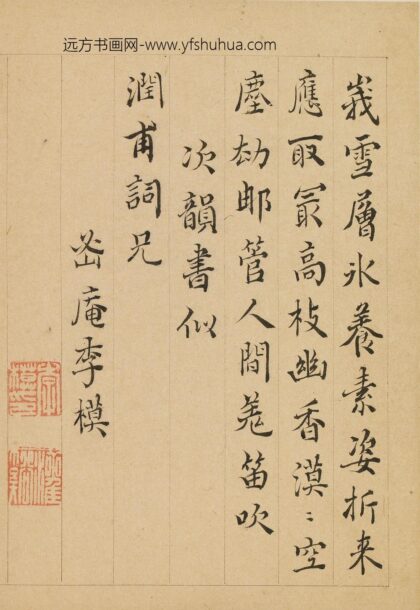 远方书画网-www.yfshuhua.com
峩雪層氷養素姿折来
應取冣高枝幽香漠〻空
塵劫那管人間羌笛吹
次韻書似
潤甫詞兄
密庵李模